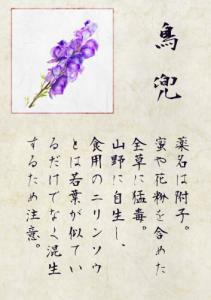 鳥兜
薬名は附子。
蜜や花粉を含めた
全草に猛毒。
山野に自生し、
食用のニリンソウ
とは若葉が似てい
るだけでなく混生
するため注意。